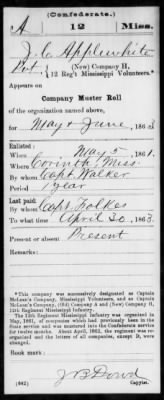 (Confederate.)
A 12 Miss.
J. C. Applewhite
Pvt, (New) Company H,
12 Reg't Mississippi Volunteers.*
Appears on
Company Muster Roll
of the organization named above,
for May & June, 1863
Enlisted:
When May 5, 1861.
Where Corinth, Miss.
By whom Capt. Walker
Period 1 year
Last paid:
By whom Capt. Folkes
To what time April 30, 1863.
Present or absent? Present
Remarks:
*This company was successively designated as Captain
McLean's Company, Mississippi Volunteers, and as Captain
McLean's Company, (Old) Company A and (New) Company H,
12th Regiment Mississippi Infantry.
The 12th Regiment Mississippi Infantry was organized in
May, 1861, of companies which had previously been in the
State service and was mustered into the Confederate service
for twelve months. About April, 1862, the regiment was re-
organized and the letters of all companies, except D, were
changed.
Book mark:
J B Dowd
(642) Copyist.